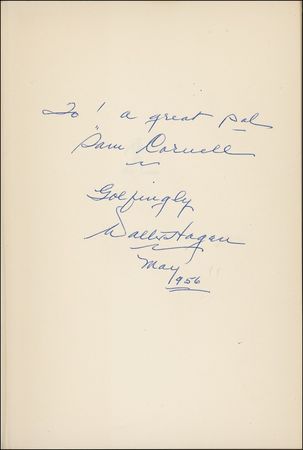 To! a great pal
"Sam Cornell
Golfingly
Walter Hagen
May
1956